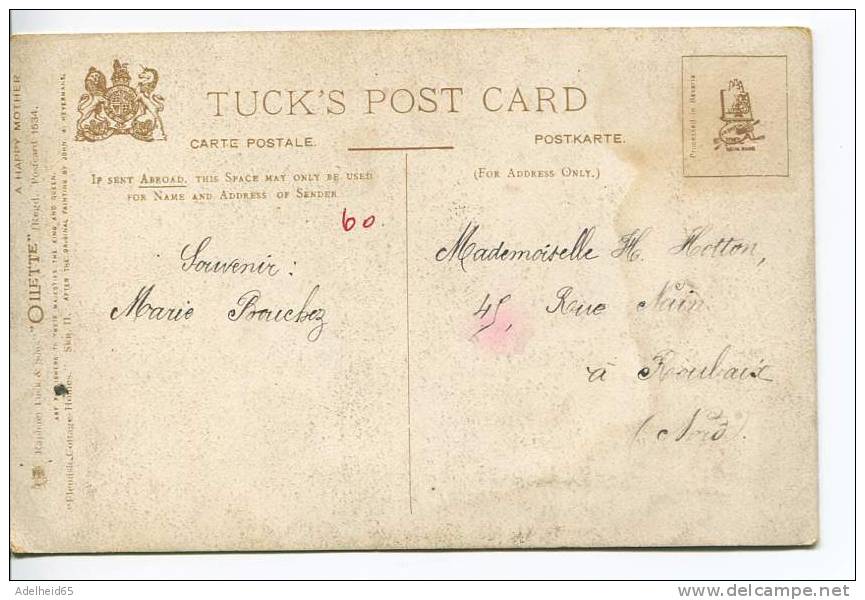 A HAPPY MOTHER
Raphael Tuck & Sons' "OILETTE" [Regd.] Postcard 1634.
ART PUBLISHERS TO THEIR MAJESTIES THE KING AND QUEEN.
"Flemish Cottage Homes." SER. II. AFTER THE ORIGINAL PAINTING BY JOHN. A. HEYERMANS.
TUCK'S POST CARD
CARTE POSTALE.
POSTKARTE.
IF SENT ABROAD, THIS SPACE MAY ONLY BE USED
FOR NAME AND ADDRESS OF SENDER
(FOR ADDRESS ONLY.)
Processed in Bavaria
60
Souvenir:
Marie Brouchez
Mademoiselle H. Hotton,
45, Rue Nain
à Roubaix
(Nord).
Adelheid65
delcampe.net